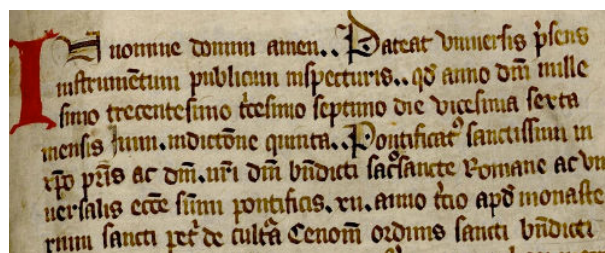 In nomine domini amen.. Pateat vniuersis p̄sens
instrumētum publicum inspecturis.. qd̄ anno dn̄i mille
simo trecentesimo t̄cesimo septimo die vicesima sexta
mensis Junii. indictōne quinta.. Pontificatꝰ sanctissimi in
xp̄o pr̄is ac dn̄i. nr̄i dn̄i bn̄dicti sac̄osancte Romane ac vni
uersalis ecc̄e sūmi pontificis. xii. anno t̄cio apd̄ monaste
rium sancti petͥ de cultᷓa Cenom̄ ordinis sancti bn̄dicti